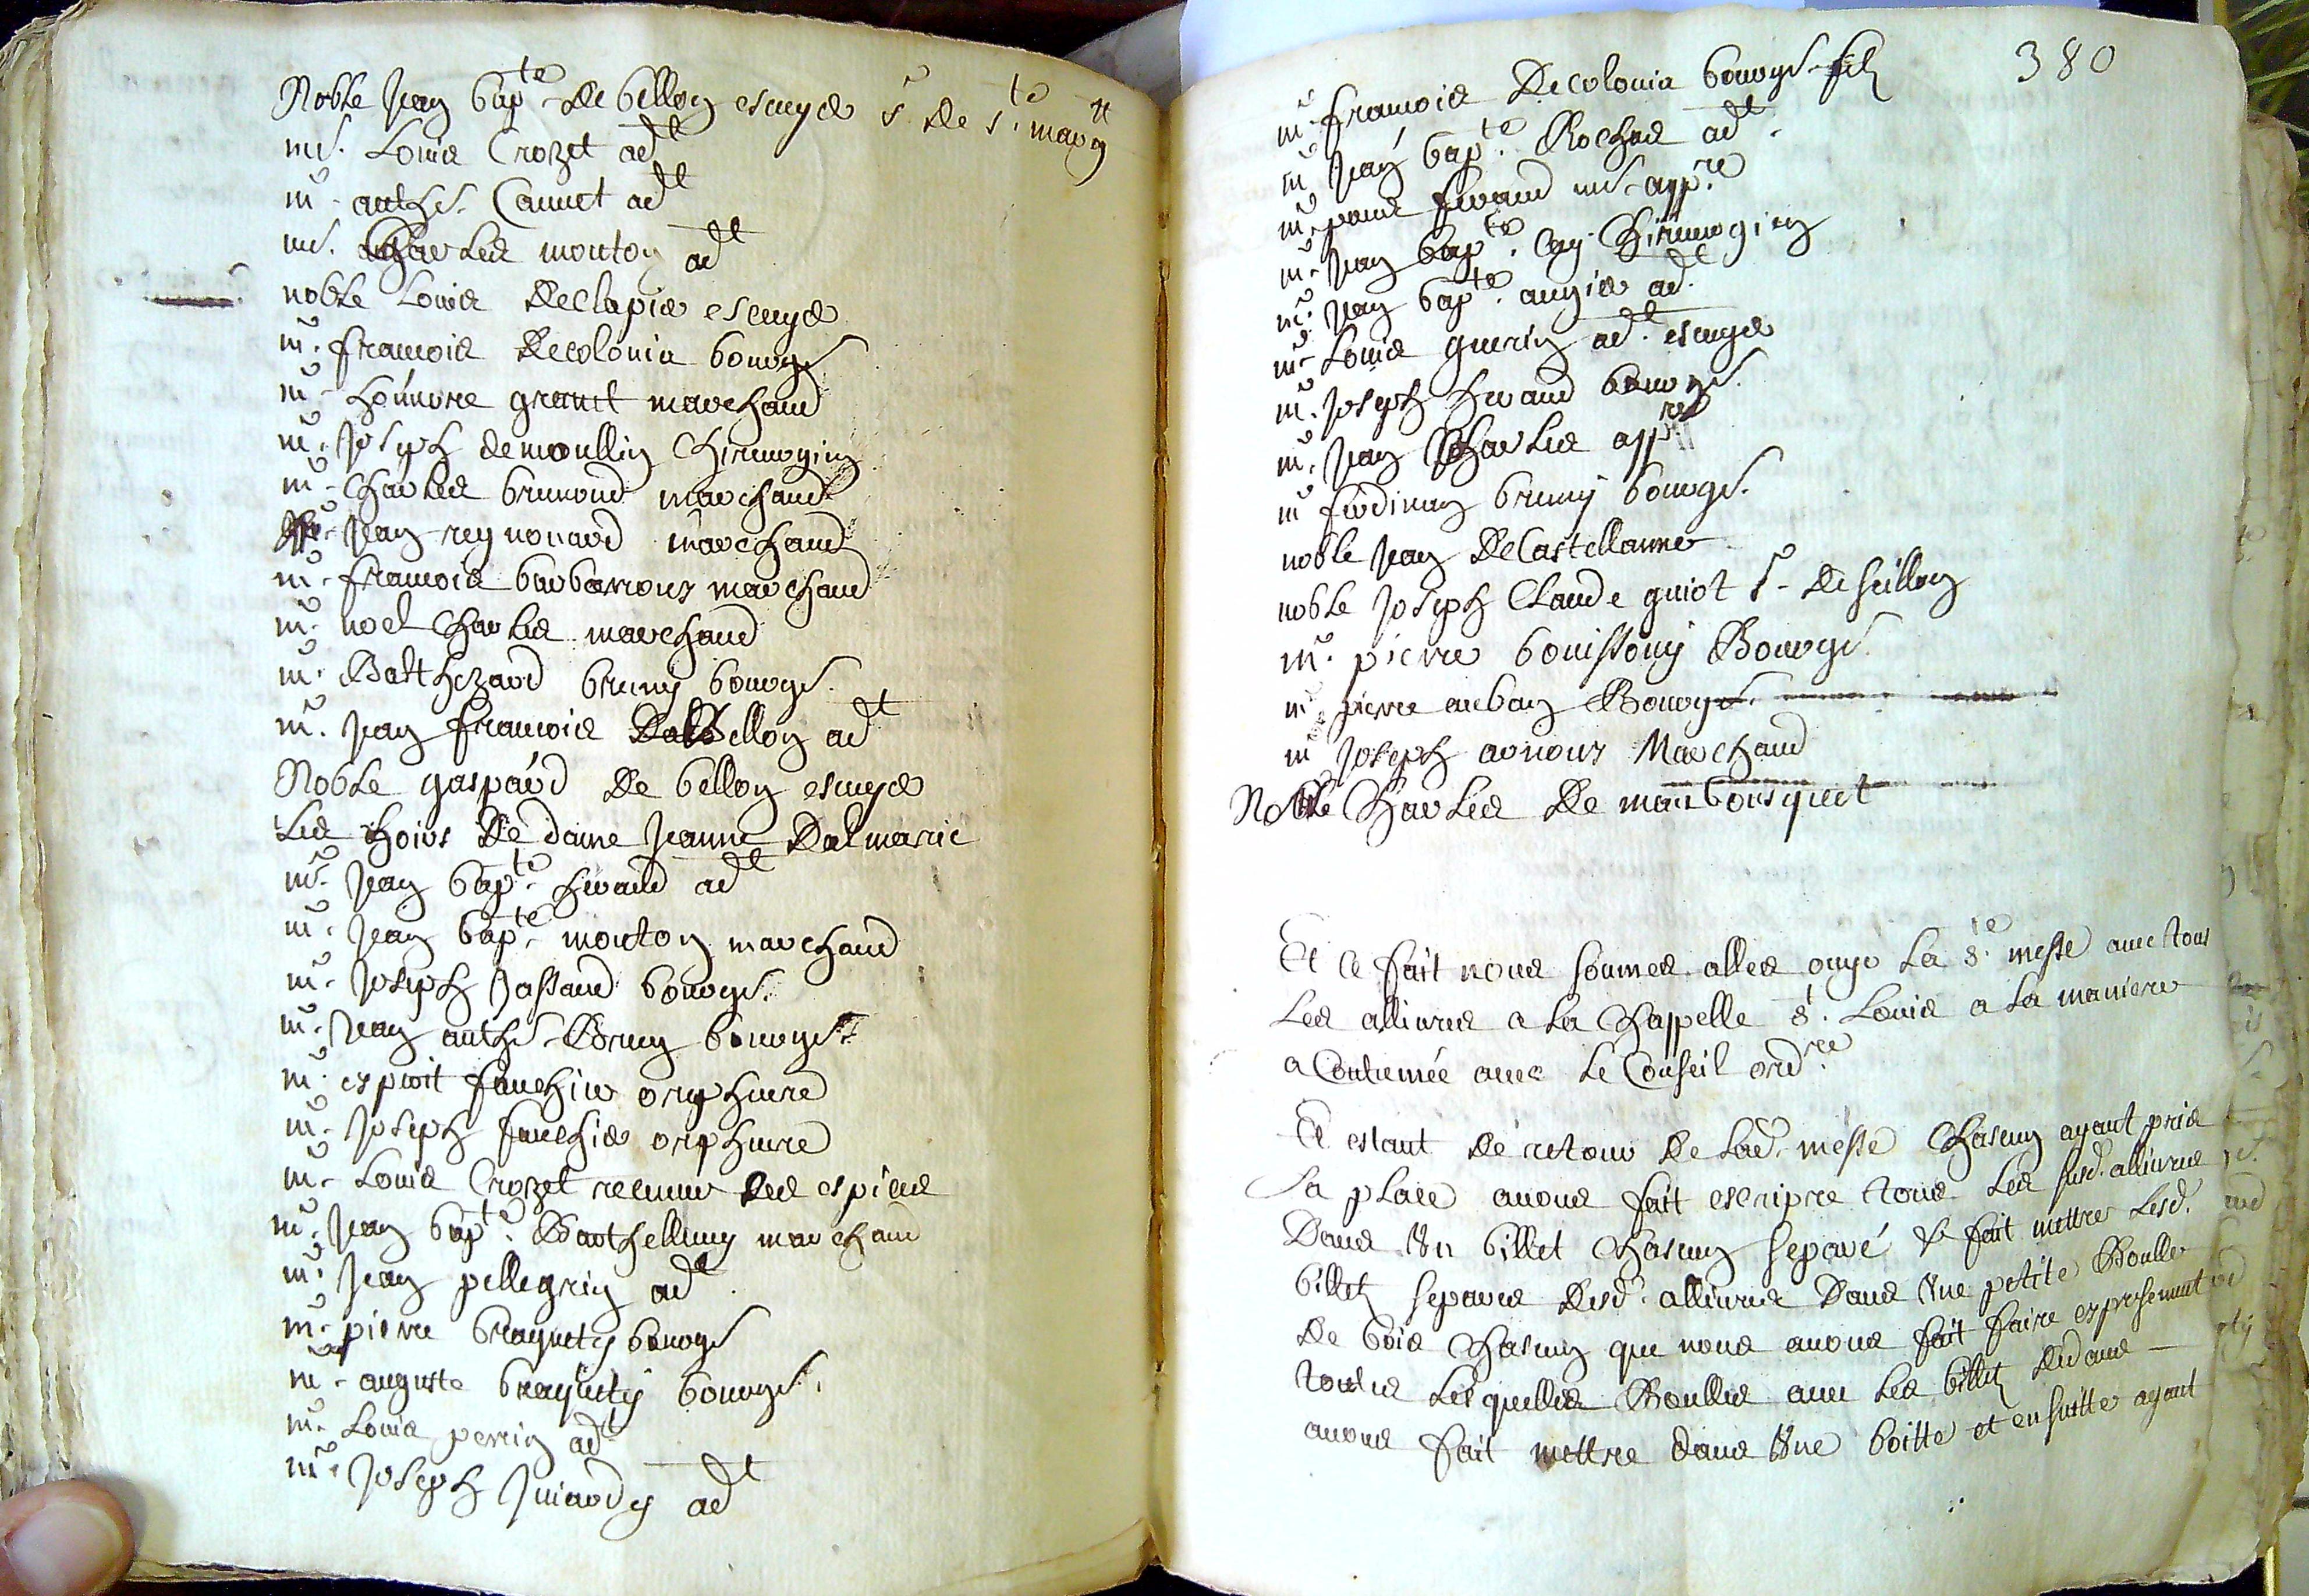 Noble Jean bapte. de bellon escuyer sr. de ste. marg
me. Louis Crozet adt
mr. anthe. Caunet adt
me. Charles mouton adt
noble Louis declapiers escuyer
mr. francois decolonia bourgs
mr. honnore granet marchand
mr. Joseph demoullin chirurgien
mr. charles brunond marchand
Jean reynouard marchand
mr. francois barbarroux marchand
mr. noel charles marchand
mr. Balthezard bruny bourgs.
mr. Jean francois Debellon adt
Noble gaspard de bellon escuyer
Les hoirs de dame Jeanne Dalmaric
me. Jean bapte. feraud adt
mr. Jean bapte. mouton marchand
mr. Joseph Jassaud bourgs.
mr. Jean anthe. Borny bourgs.
mr. esprit fauchier orphuvre
mr. Joseph fauchier orphuvre
mr. Louis Crozet receveur des espices
mr. Jean bapte. Barthellemy marchand
mr. Jean pellegrin adt.
mr. pierre braquety bourgs
mr. auguste braquety bourgs.
mr. Louis perrin adt
mr. Joseph Juiardy adt
380
mr. francois Decolonia bourgs. fils
mr Jean bapte. Rochas adt.
mr. paul feraud me. appre
mr. Jean bapte. chirurgien
mr. Jean bapte. augier adt.
mr. Louis guerin adt. escuyer
mr. Joseph feraud bourgs.
mr. Jean Charles appre
mr ferdinan bruny bourgs.
noble Jean DeCastellanne
noble Joseph Claude guiot sr. de seillon
mr. pierre bouissony Bourgs.
mr. pierre auban Bourgs.
mr Joseph arnoux Marchand
Noble Charles de mari bousquet
Et ce fait nous sommes alles ouyr la ste. messe avec tous
Les allivres a la chappelle st. Louis a la maniere
a Coutumée avec le Conseil ordre.
Et estant de retour de lad. messe chascun ayant pris
sa place avons fait escripre tous les susd. allivres
Dans un billet chascun separé & fait mettre lesd.
billets separes desd. allivres dans une petite Boulle
de bois chascun que nous avons fait faire expressement
toutes lesquelles Boulles avec les billets dedans
avons fait mettre dans une boitte et ensuitte ayant